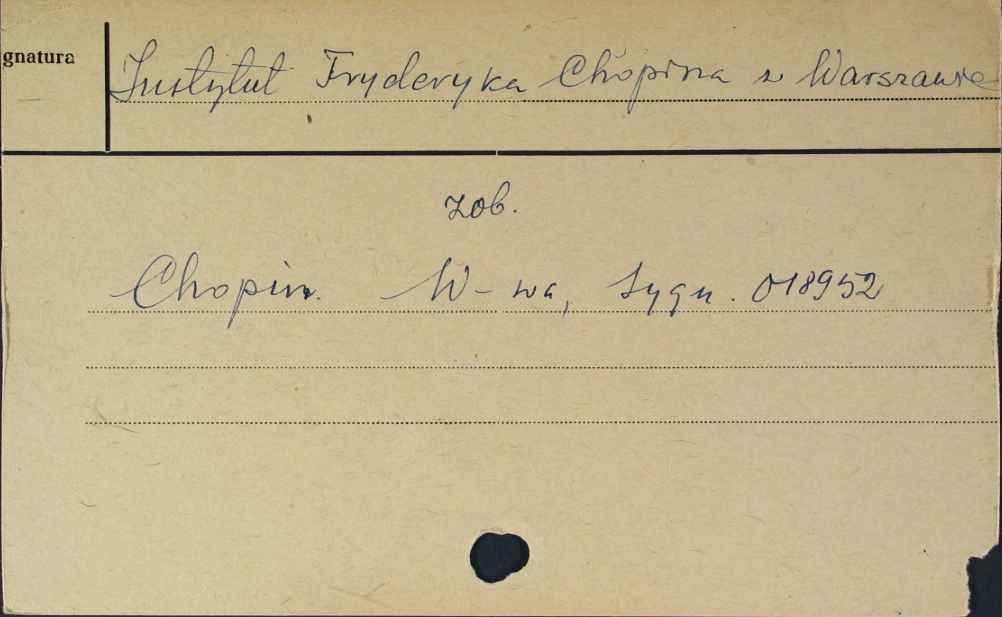 gnatura
Instytut Fryderyka Chopina z Warszawie
zob.
Chopin. W-wa, Sygn. 018952